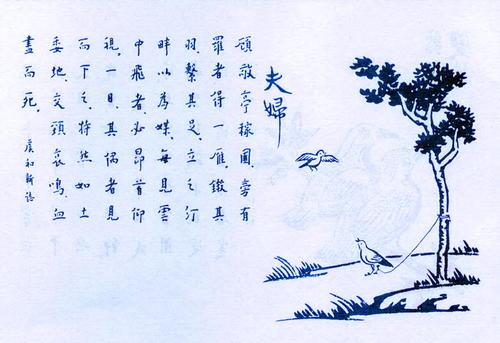 夫婦
頋敬亭稼圃旁有
羅者得一雁、鎩其
羽、縶其足、立之汀
畔以為媒、每見雲
中飛者、必昂首仰
視、一日、其偶者見
而下之、特然如土
委地、交頸哀鳴、血
盡而死、
虞初新誌